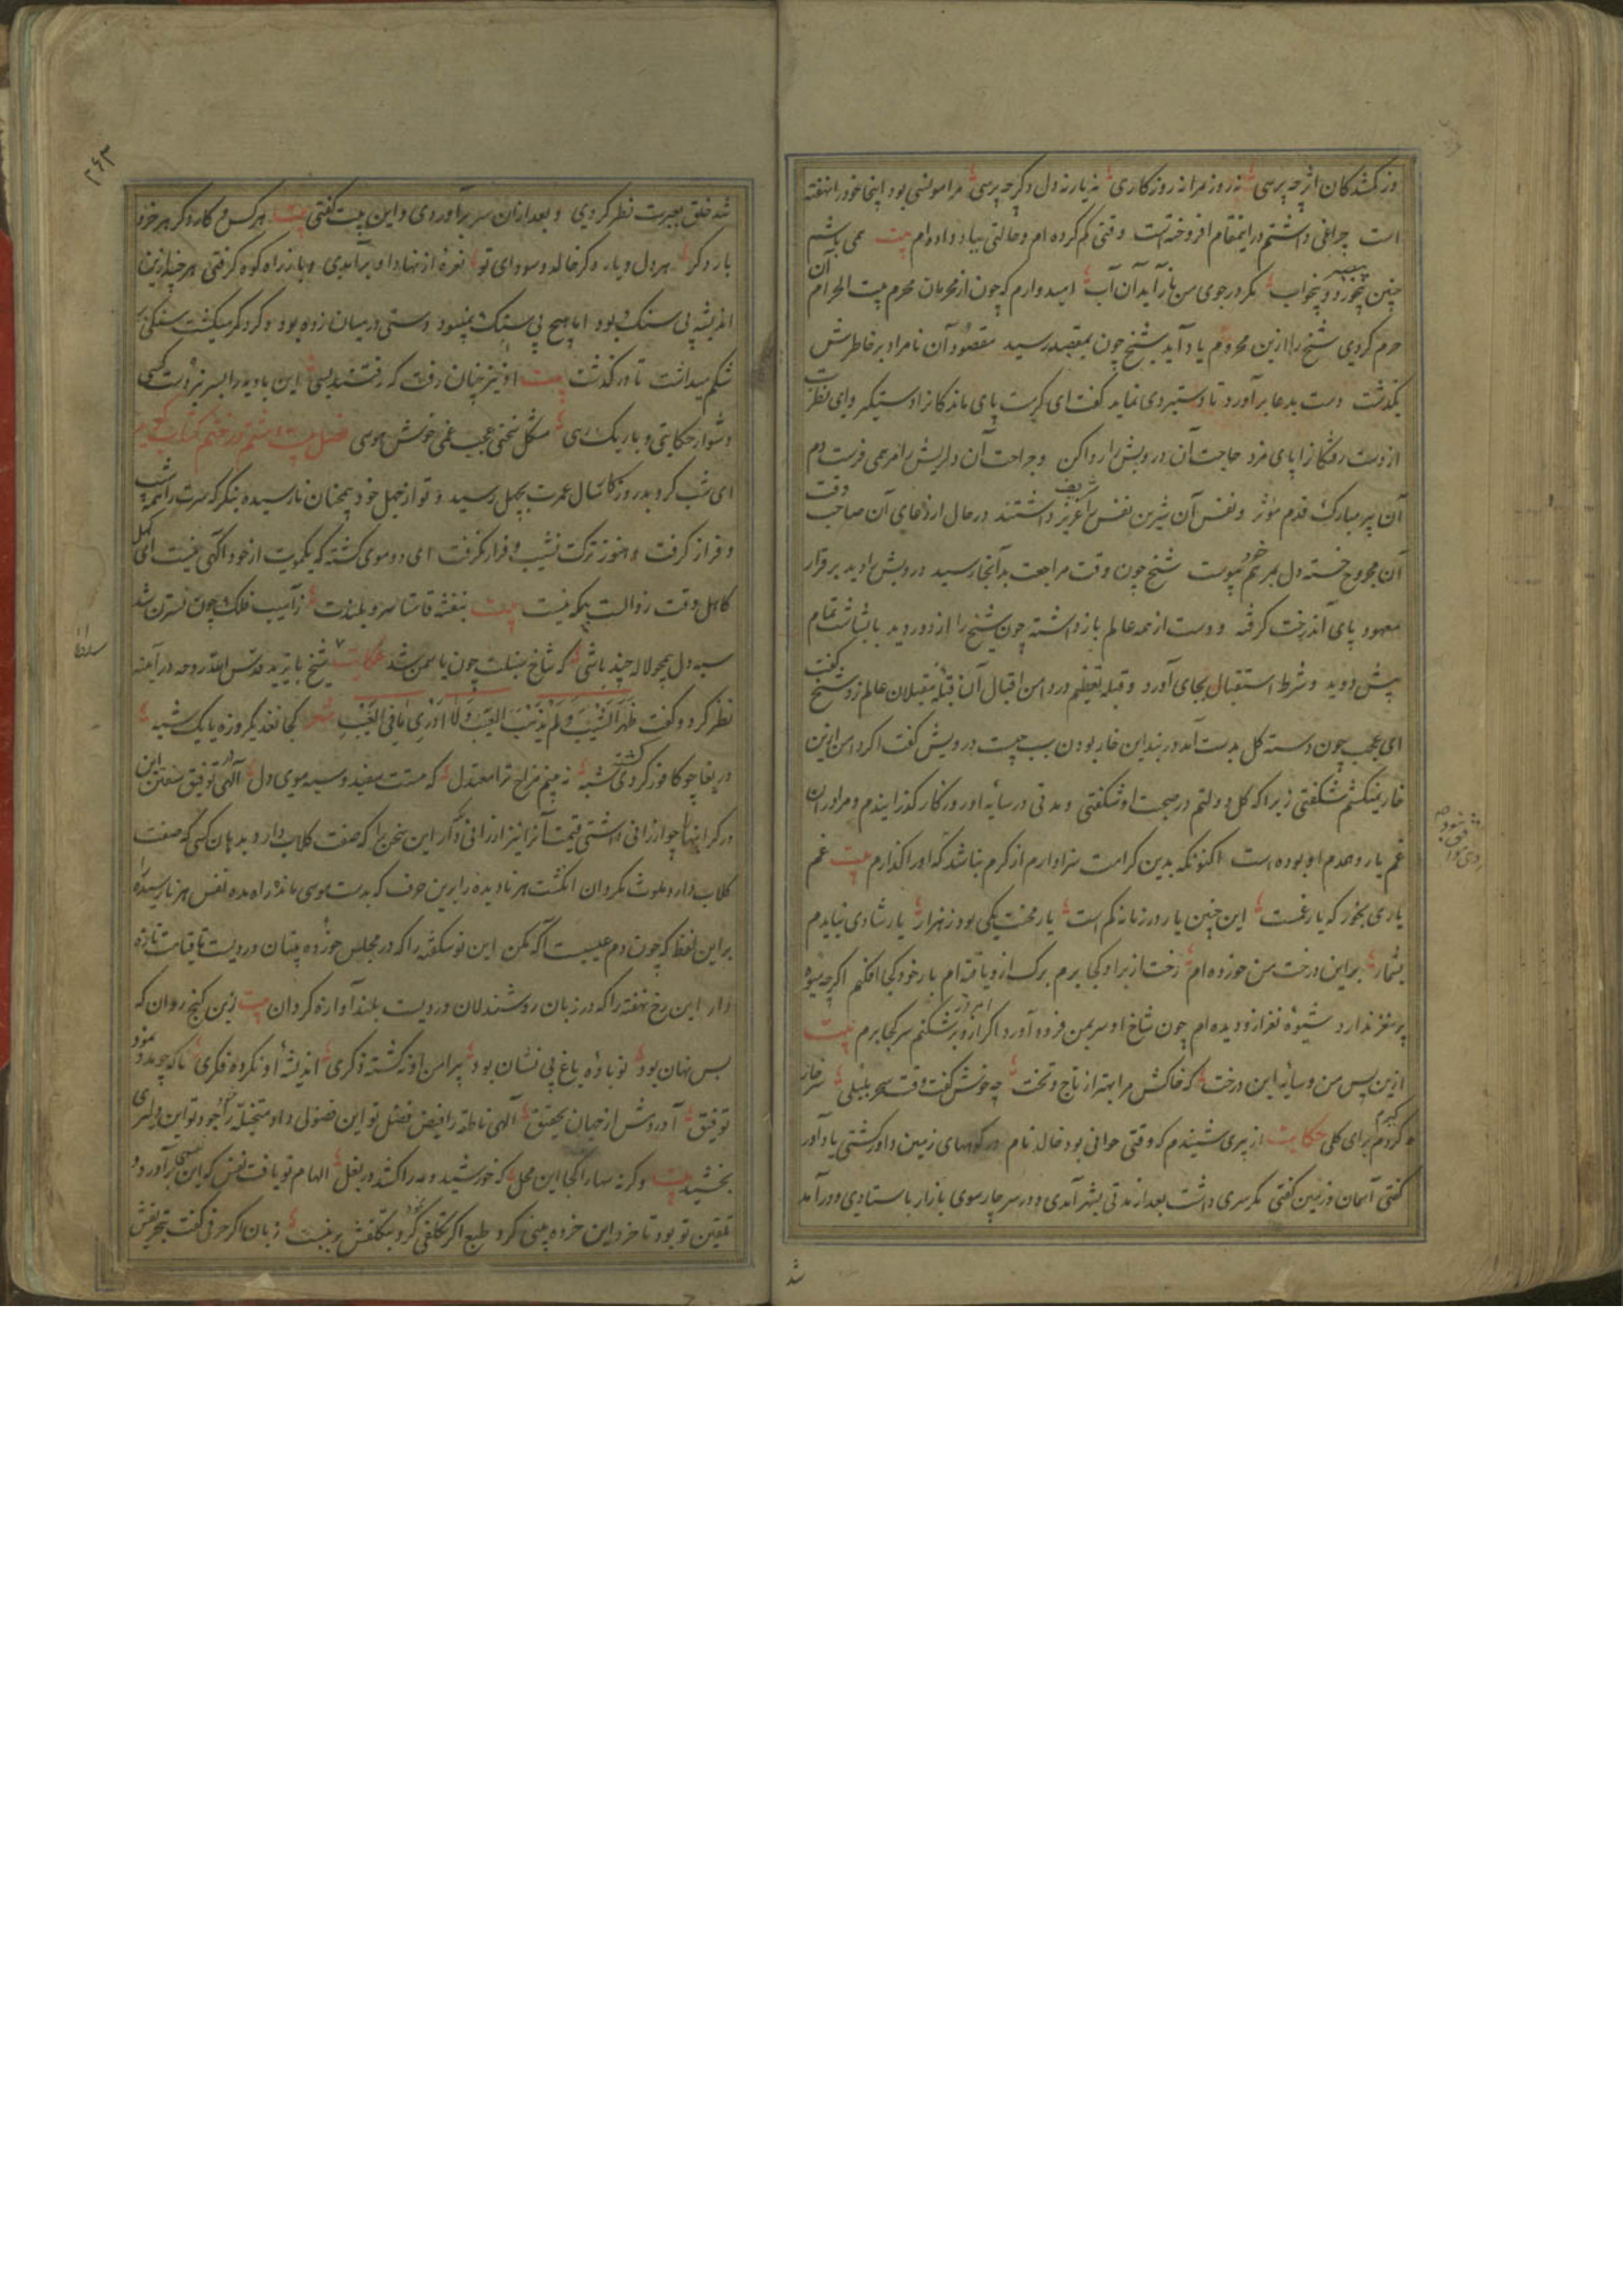 وز کشدکان اثر چه پرسی نه روز مرا نه روزکاری نه یار نه دل دکر چه پرسی مرا مونسی بود اینجا خود را نهفته
است چراغی داشتم در اینمقام افروخته است وقتی کم کرده ام و حالتی بباد داده ام بیت همی باشم
چنین بیخورد و بیخواب مکر در جوی من باز آید آن آب امیدوارم که چون از محرمان محرم بیت الحرام
حرم کردی شیخ را ازین محروم یاد آید شیخ چون بمقصد رسید مقصود آن نامراد بر خاطرش
بکذشت دست بدعا برآورد تا دستبردی نماید کفت ای کریمت پای ماندکانرا دستکیر وای نظرت
از دست رفتکانرا پای مزد حاجت آن درویش را روا کن و جراحت آن دلریش را مرهمی فرست دم
آن پیر مبارک قدم مؤثر و نفس آن شیرین نفس را عزیز داشتند در حال از دعای آن صاحب وقت
آن مجروح خسته دل بمرهم پیوست شیخ چون وقت مراجعت بدآنجا رسید درویش را دید بر قرار
معهود پای آندرخت کرفته و دست از همه عالم بازداشته چون شیخ را از دور دید با بشاشت تمام
پیش دوید و شرط استقبال بجای آورد و قبله تعظیم در دامن اقبال آن قبله مقبلان عالم زد شیخ کفت
ای عجب چون دسته کل بدست آمد در بند این خار بودن سبب چیست درویش کفت اکر دامن ازین
خار نمیکشم شکفتی زیرا که کل دولتم در صحبت او شکفتی و مدتی در سایه او روزکار کذرانیدم و مرا دران
غم یار و همدم او بوده است اکنونکه بدین کرامت سزاوارم از کرم نباشد که او را کذارم بیت غم
یاری بخور که یار غمست این چنین یار در زمانه کم است یار محنت یکی بود ز هزار یار شادی نیایدم
بشمار بر این درخت من خورده ام رخت از بر او کجا برم برک ازو یافته ام بار خود کجا افکنم اکر چه میوه
پرمغز ندارد شیوه نغز ازو دیده ام چون شاخ او سر بمن فرود آورد اکر از او سر شکنم سر کجا برم بیت
ازین پس من و سایه این درخت که خاکش مرا بهتر از تاج و تخت چه خوش کفت وقت سحر بلبلی سر خار
کردم برای کلی حکایت از پیری شنیدم که وقتی جوانی بود خالد نام در کوههای زمین داور کشتی یا داور
کفتی آسمان و زمین کفتی مکر سری داشت بعد از مدتی بشهر آمدی و در سر چارسوی بازار باستادی و درآمد
شد
۲۶۳
شد خلق بعبرت نظر کردی و بعد ازان سر برآوردی و این بیت کفتی بیت هر کس و کار دکر هر خر و
بار دکر هر دل و یار دکر خالد و سودای تو نعره از نهاد او برآمدی و باز راه کوه کرفتی هر چند ازین
اندیشه بی سنک بود اما هیچ بی سنک نمیبود دستی در میان زده بود و کرد کر میکشت سنکی بر
شکم میداشت تا در کذشت بیت او نیز چنان رفت که رفتند بسی این بادیه را بسر نبردست کسی
دشوار حکایتی و باریک رهی مشکل سخنی عجب غمی خوش هوسی فصل بیست و ششم در ختم کتاب کوید
ای شب کرد بدروز کا سال عمرت بچهل رسید و تو از جهل خود همچنان نارسیده بنکر که سرت را شیب
و فراز کرفت و هنوز ترکت نشیب و فراز نکرفت ای دو موی کشته که یکمویت از خود آکهی نیست ای
کاهل وقت زوالست بیت بنفشه قامتا سرو بلندت زآسیب فلک چون نسترن شد
سیه دل همچو لاله چند باشی که شاخ سنبلت چون یاسمن شد حکایت شیخ بایزید قدس الله روحه در آینه
نظر کرد و کفت ظهر الشیب و لم یذهب العیب و لا ادری ما فی الغیب شعر کجا نغذ یکروزه با یک شبه
دریغا چو کافور کردی شبه نه بینم مزاج ترا معتدل که هستت سفید و سیه موی و دل آلهی توفیق سفتن این
در کرانبها چو ارزانی داشتی قیمت آنرا نیز ارزانی دار این سخن را که صفت کلاب دارد بدهان کسی که صفت
کلاب دارد ملوث مکردان انکشت هنر نادیده را برین حرف که بدست موسی ماند راه مده نفس هنر نارسیده را
بر این لفظ که چون دم عیسیست آکه مکن این نوشکفته را که در مجلس خورده بینان درویست تا قیامت تازه
دار این رخ نهفته را که در زبان روشندلان درویست بلند آوازه کردان بیت ازین کنج روان که
بس نهان بود نوباوه باغ بی نشان بود پیرامن او نه کشته ذکری اندیشه او نکرده فکری ناکه چو مدد نمود
توفیق آوردش از جهان تحقیق آلهی ناطقه را فیض فضل تو این فضولی داد متخیله را جود تو این دلیری
بخشید بیت وکرنه سها را کجا این محل که خورشید و مه را کشد در بغل الهام تو یافت نفس که این نفس برآورد
تلقین تو بود تا خرد این خرده چینی کرد طبع اکر تکلفی کرد بتکلفش بر نبست زبان اکر حرفی کفت بتحریفش